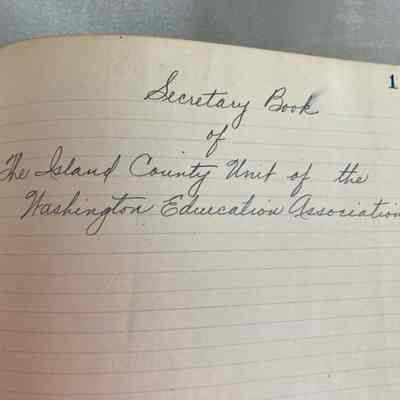 1
Secretary Book
of
The Island County Unit of the
Washington Education Association